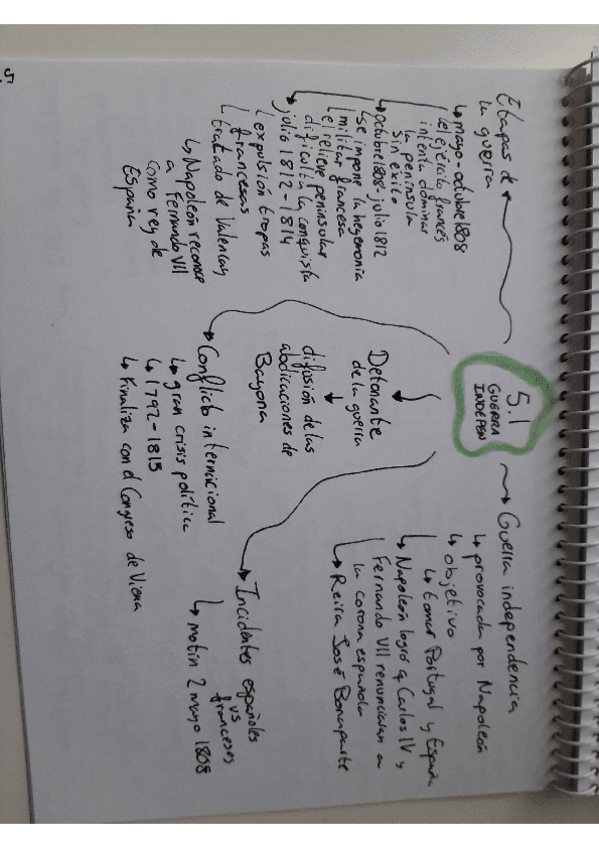 5.1
GUERRA
INDEPEN
Etapas de
la guerra
↳ mayo-octubre 1808
el ejército francés
intenta dominar
la península
sin éxito
↳ octubre 1808-julio 1812
se impone la hegemonía
militar francesa
el relieve peninsular
dificulta la conquista
julio 1812-1814
expulsión tropas
francesas
tratado de Valençay
↳ Napoleón reconoce
a Fernando VII
como rey de
España
Detonante
de la guerra
difusión de las
abdicaciones de
Bayona
→ Guerra independencia
↳ provocada por Napoleón
↳ objetivo
↳ tomar Portugal y España
↳ Napoleón logró q Carlos IV y
Fernando VII renunciaran a
la corona española
↳ Reina José Bonaparte
→ Conflicto internacional
↳ gran crisis política
↳ 1792-1815
↳ Finaliza con el Congreso de Viena
→ Incidentes españoles
vs
franceses
↳ motín 2 mayo 1808